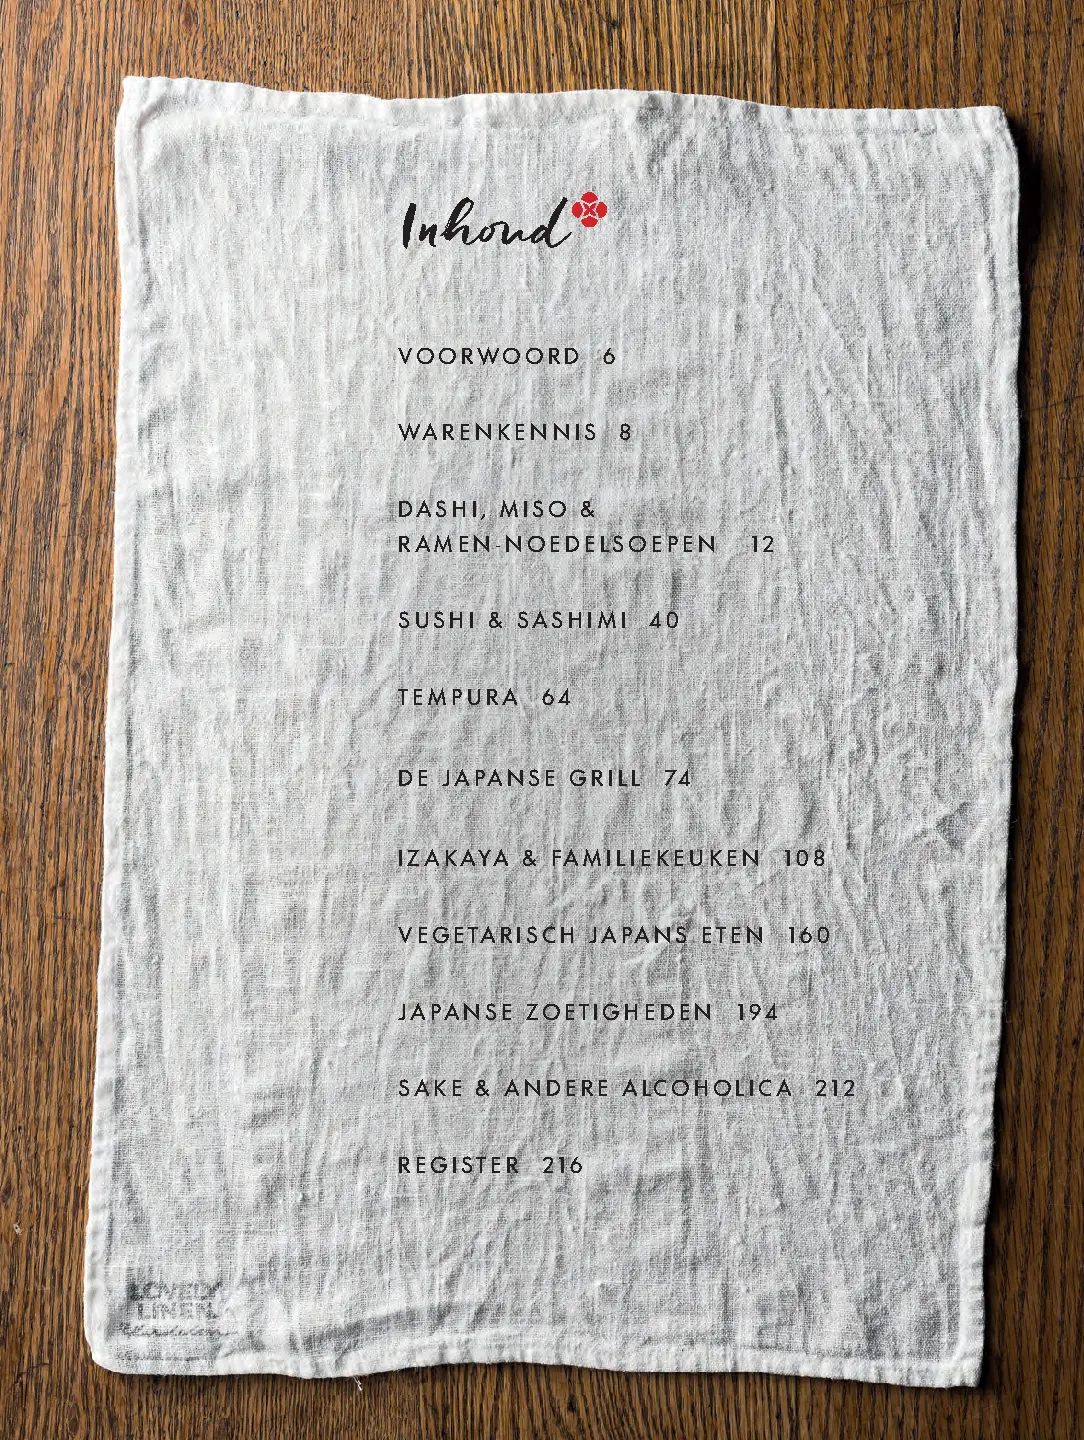 Inhoud
VOORWOORD 6
WARENKENNIS 8
DASHI, MISO &
RAMEN-NOEDELSOEPEN 12
SUSHI & SASHIMI 40
TEMPURA 64
DE JAPANSE GRILL 74
IZAKAYA & FAMILIEKEUKEN 108
VEGETARISCH JAPANS ETEN 160
JAPANSE ZOETIGHEDEN 194
SAKE & ANDERE ALCOHOLICA 212
REGISTER 216
LOVELY
LINEN